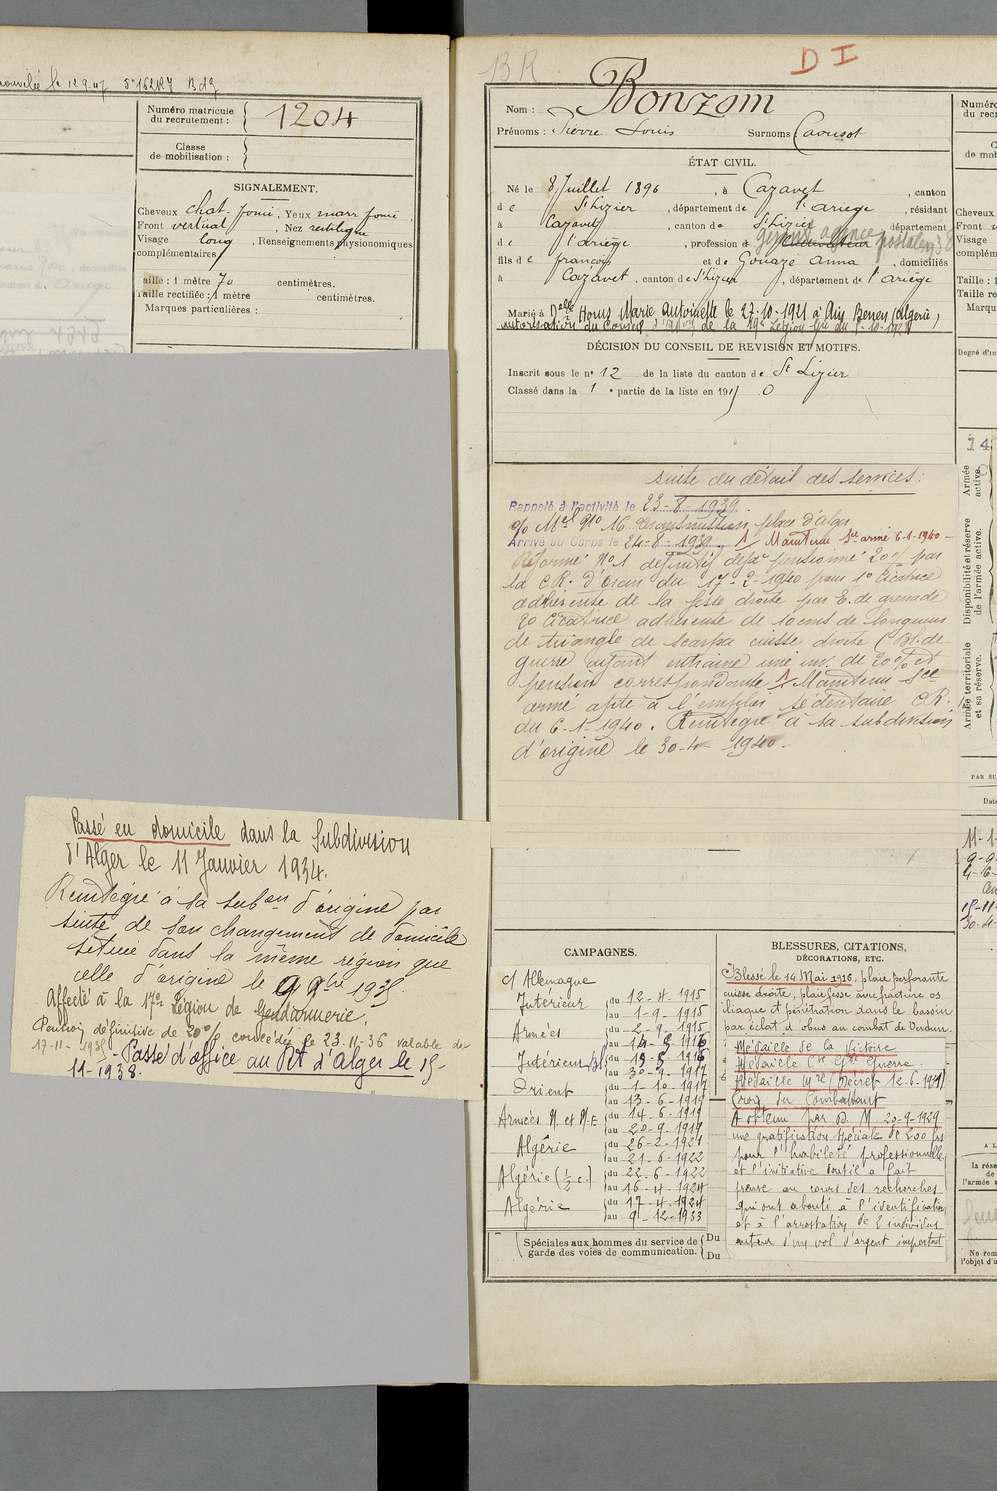 le 12.9.47
Numéro matricule
du recrutement : 1204
Classe
de mobilisation :
SIGNALEMENT.
Cheveux chat. foncé, Yeux marr foncé
Front vertical, Nez rectiligne
Visage long, Renseignements physionomiques
complémentaires
Taille : 1 mètre 70 centimètres.
Taille rectifiée : 1 mètre centimètres.
Marques particulières :
Passé en domicile dans la Subdivision
d'Alger le 11 Janvier 1934.
Réintégré à sa subon d'origine par
suite de son changement de domicile
situé dans la même région que
celle d'origine le 9 9bre 1935
Affecté à la 17e Légion de Gendarmerie.
Pension définitive de 20% concédée le 23-11-36 valable du
17-11-1935 - Passé d'office au Rt d'Alger le 15-
11-1938.
BR
DI
Nom : Bonzom
Prénoms : Pierre Louis Surnoms Caousot
ÉTAT CIVIL.
Né le 8 Juillet 1896, à Cazavet, canton
de St Lizier, département de l'Ariège, résidant
à Cazavet, canton de St Lizier, département
de l'Ariège, profession de cultivateur gérant agence postale
fils de françois et de Gouazé Anna, domiciliés
à Cazavet, canton de St Lizier, département de l'Ariège
Marié à Delle Horus Marie Antoinette le 27-10-1921 à Ain Beney (Algérie)
autorisation du Conseil d'adon de la 19e Légion
DÉCISION DU CONSEIL DE REVISION ET MOTIFS.
Inscrit sous le n° 12 de la liste du canton de St Lizier
Classé dans la 1e partie de la liste en 1915 0
suite du détail des services :
Rappelé à l'activité le 23-8-1939.
Mel Gto N6 Transmission place d'alger
Arrivé au Corps le 24-8-1939 1/ Maintenu Sce armé 6-1-1940 -
Réformé N°1 définitif déjà pensionné 20% par
la CR. d'Oran du 17-2-1940 pour 1° Cicatrice
adhérente de la fesse droite par E. de grenade
2° Cicatrice adhérente de 10 cms de longueur
de triangle de scarpa cuisse droite (Bl. de
guerre ayant entrainé une inv. de 20% et
pension correspondante 1/ Maintenu Sce
armé apte à l'emploi sédentaire CR.
du 6-1-1940. Réintégré à sa subdivision
d'origine le 30-4- 1940.
CAMPAGNES.
c/ Allemagne
Intérieur du 12-4-1915
au 1-9-1915
Armées du 2-9-1915
au 14-5-1916
Intérieur Bl. du 15-5-1916
au 30-9-1917
Orient du 1-10-1917
au 13-6-1919
Armées N. et N.E du 14-6-1919
au 20-9-1919
Algérie du 26-2-1921
au 21-6-1922
Algérie (1/2 c.) du 22-6-1922
au 16-4-1924
Algérie du 17-4-1924
au 9-12-1933
Spéciales aux hommes du service de
garde des voies de communication. Du
Du
BLESSURES, CITATIONS,
DÉCORATIONS, ETC.
Blessé le 14 Mai 1916, plaie perforante
cuisse droite, plaie fesse avec fracture os
iliaque et pénétration dans le bassin
par éclat d'obus au combat de Verdun.
Médaille de la Victoire
Médaille Cve Gde Guerre.
Médaille Mre (Décret 12-6-1931)
Croix du Combattant
A obtenu par D. M. 20-9-1929
une gratification spéciale de 200 frs
pour l'habileté professionnelle
et l'initiative dont il a fait
preuve au cours des recherches
qui ont abouti à l'identification
et à l'arrestation de l'individu
auteur d'un vol d'argent important
Numéro
du rec
C
de mob
Cheveux
Front
Visage
complém
Taille
Taille re
Marqu
Degré d'in
14
Armée
active.
Disponibilité et réserve
de l'armée active.
Armée territoriale
et sa réserve.
PAR SU
Date
11-1-
9-9-
4-6-
15-11-
30-4-
A L
la rése
de
l'armée a
Ne rem
l'objet d'u